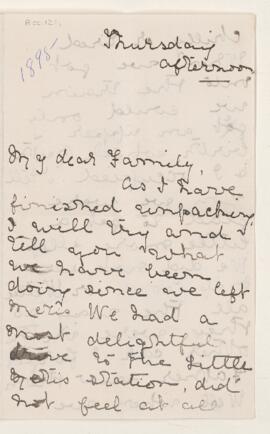 Acc.121
1895
Thursday
afternoon
My dear Family,
As I have
finished unpacking
I will try and
tell you what
we have been
doing since we left
Metis We had a
most delightful
drive to the Little
Metis station, did
not feel at all